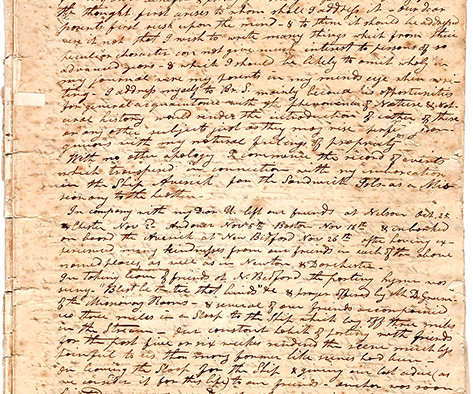 the thought first arises to whom shall I address it - our dear
parents first rush upon the mind - & to them it should be addressed
were it not that I wish to write many things which from their
peculiar character can not give much interest to persons of so
advanced years & which I should be likely to omit wholly in
my journal were my parents in my minds eye when wri-
ting - I address myself to Br. S. mainly because his opportunities
for general acquaintance with the phenomena of Nature & Nat-
ural history would render the introduction of either of these
or any other subject just as they may rise -
-gruous with my natural feelings of propriety
With no other apology I commence the record of events
which transpired in connection with my embarcation
in the Ship Averick for the Sandwich Isl's as a Mis-
sionary to the heathen.
In company with my Dear U. left our friends at Nelson Oct. 25
& Chester Nov 2 Andover Nov 5th Boston Nov 16th & embarked
on board the Averick at New Bedford Nov 26th after having ex-
perienced many kindnesses from dear friends in each of the above
named places as well as in Newton & Dorchester
In taking leave of friends at N. Bedford the parting hymn was
sung - "Blest be the tie that binds" &c & prayer offered by Mr. D. Green
of the Missionary Rooms - & several of our friends accompanied
us three miles in a Sloop to the Ship which lay off three miles
in the Stream - Our constant habit of parting with friends
for the past five or six weeks rendered the scene much less
painful to us than many former like scenes had been
On leaving the Sloop for the Ship & giving our last adieu (as
we consider it for this life) to our friends - anchor was soon